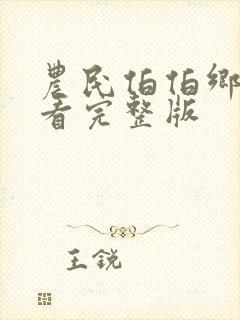 農民伯伯鄉
看完整版
王銳